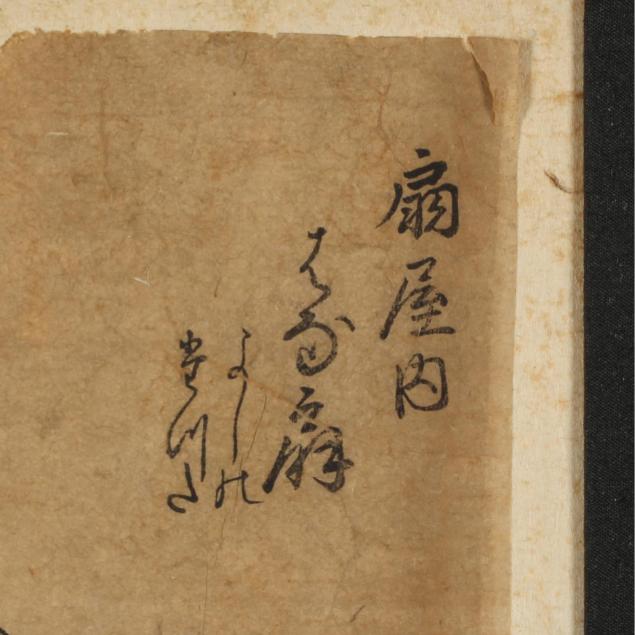 扇屋内
はな扇
よしの
たつた